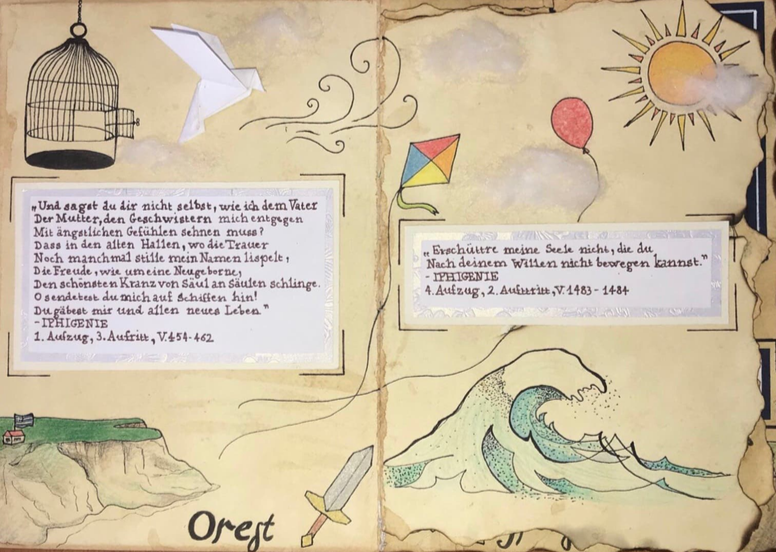 „Und sagst du dir nicht selbst, wie ich dem Vater
Der Mutter, den Geschwistern mich entgegen
Mit ängstlichen Gefühlen sehnen muss?
Dass in den alten Hallen, wo die Trauer
Noch manchmal stille meinen Namen lispelt,
Die Freude, wie um eine Neugeborne,
Den schönsten Kranz von Säul an Säulen schlinge.
O sendetest du mich auf Schiffen hin!
Du gäbest mir und allen neues Leben."
-IPHIGENIE
1. Aufzug, 3. Aufritt, V.454-462
„Erschüttre meine Seele nicht, die du
Nach deinem Willen nicht bewegen kannst."
- IPHIGENIE
4. Aufzug, 2. Auftritt, V. 1483 - 1484
Orest